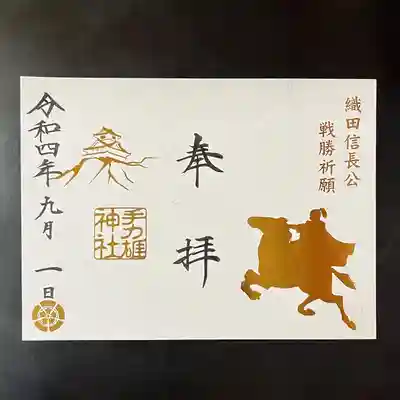 織田信長公
戦勝祈願
奉拝
手力雄
神社
令和四年九月一日